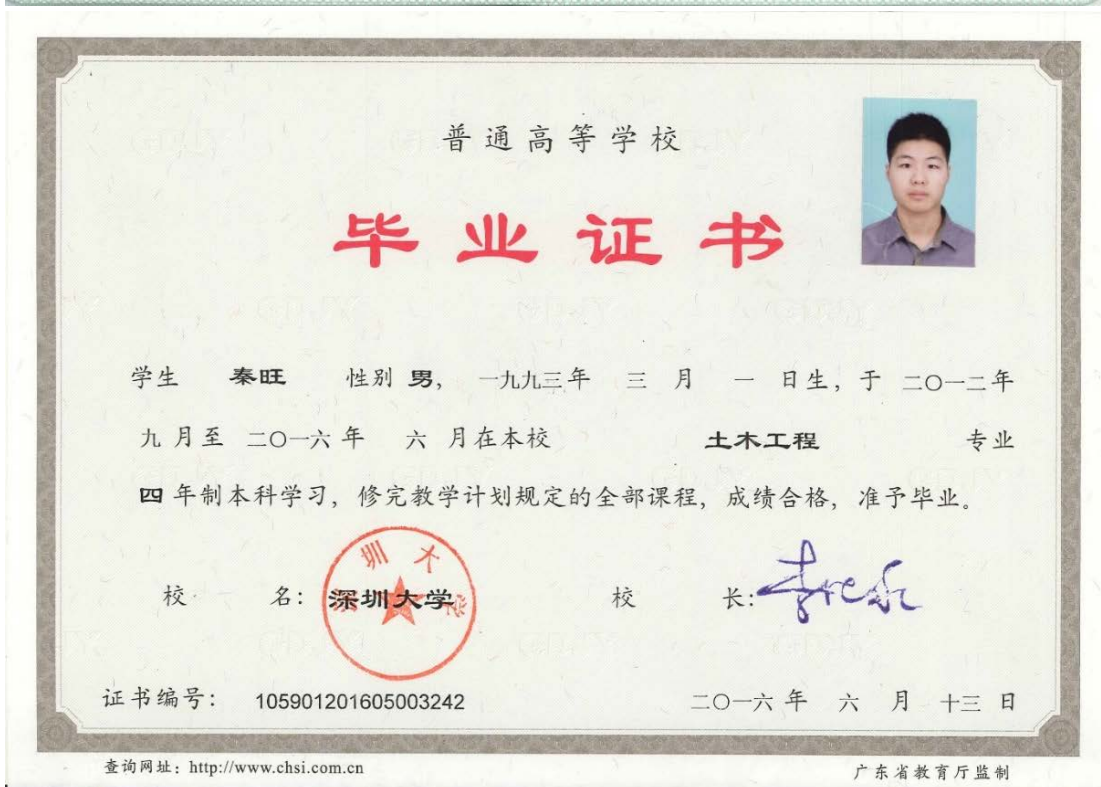 普通高等学校
毕业证书
学生 秦旺 性别 男， 一九九三年 三 月 一 日生，于 二〇一二年
九 月至 二〇一六 年 六 月在本校 土木工程 专业
四 年制本科学习，修完教学计划规定的全部课程，成绩合格，准予毕业。
校 名： 深圳大学 校 长：
深圳大学
证书编号： 105901201605003242 二〇一六 年 六 月 十三 日
查询网址：http://www.chsi.com.cn 广东省教育厅监制